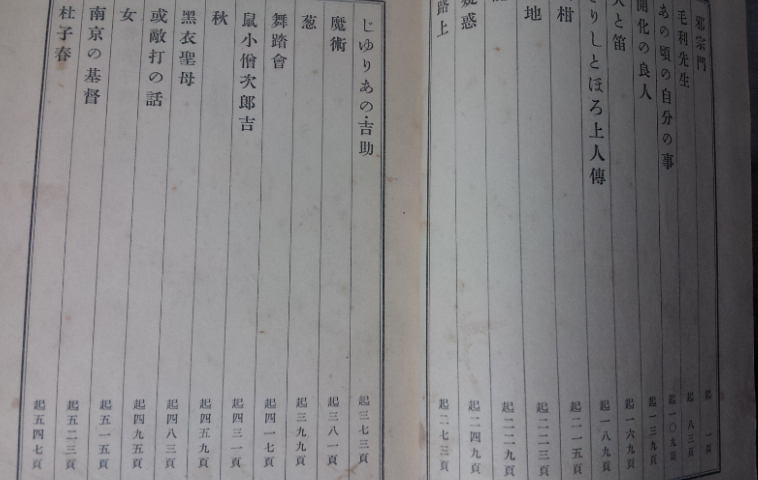 邪宗門 起一頁
毛利先生 起八三頁
あの頃の自分の事 起一〇九頁
開化の良人 起一三九頁
人と笛 起一六九頁
りしとほろ上人傳 起一八九頁
柑 起二一五頁
地 起二二三頁
起二二九頁
疑惑 起二四九頁
路上 起二七三頁
じゆりあの・吉助 起三七三頁
魔術 起三八一頁
葱 起三九九頁
舞踏會 起四一七頁
鼠小僧次郎吉 起四三一頁
秋 起四五九頁
黑衣聖母 起四八三頁
或敵打の話 起四九五頁
女 起五一五頁
南京の基督 起五二三頁
杜子春 起五四七頁